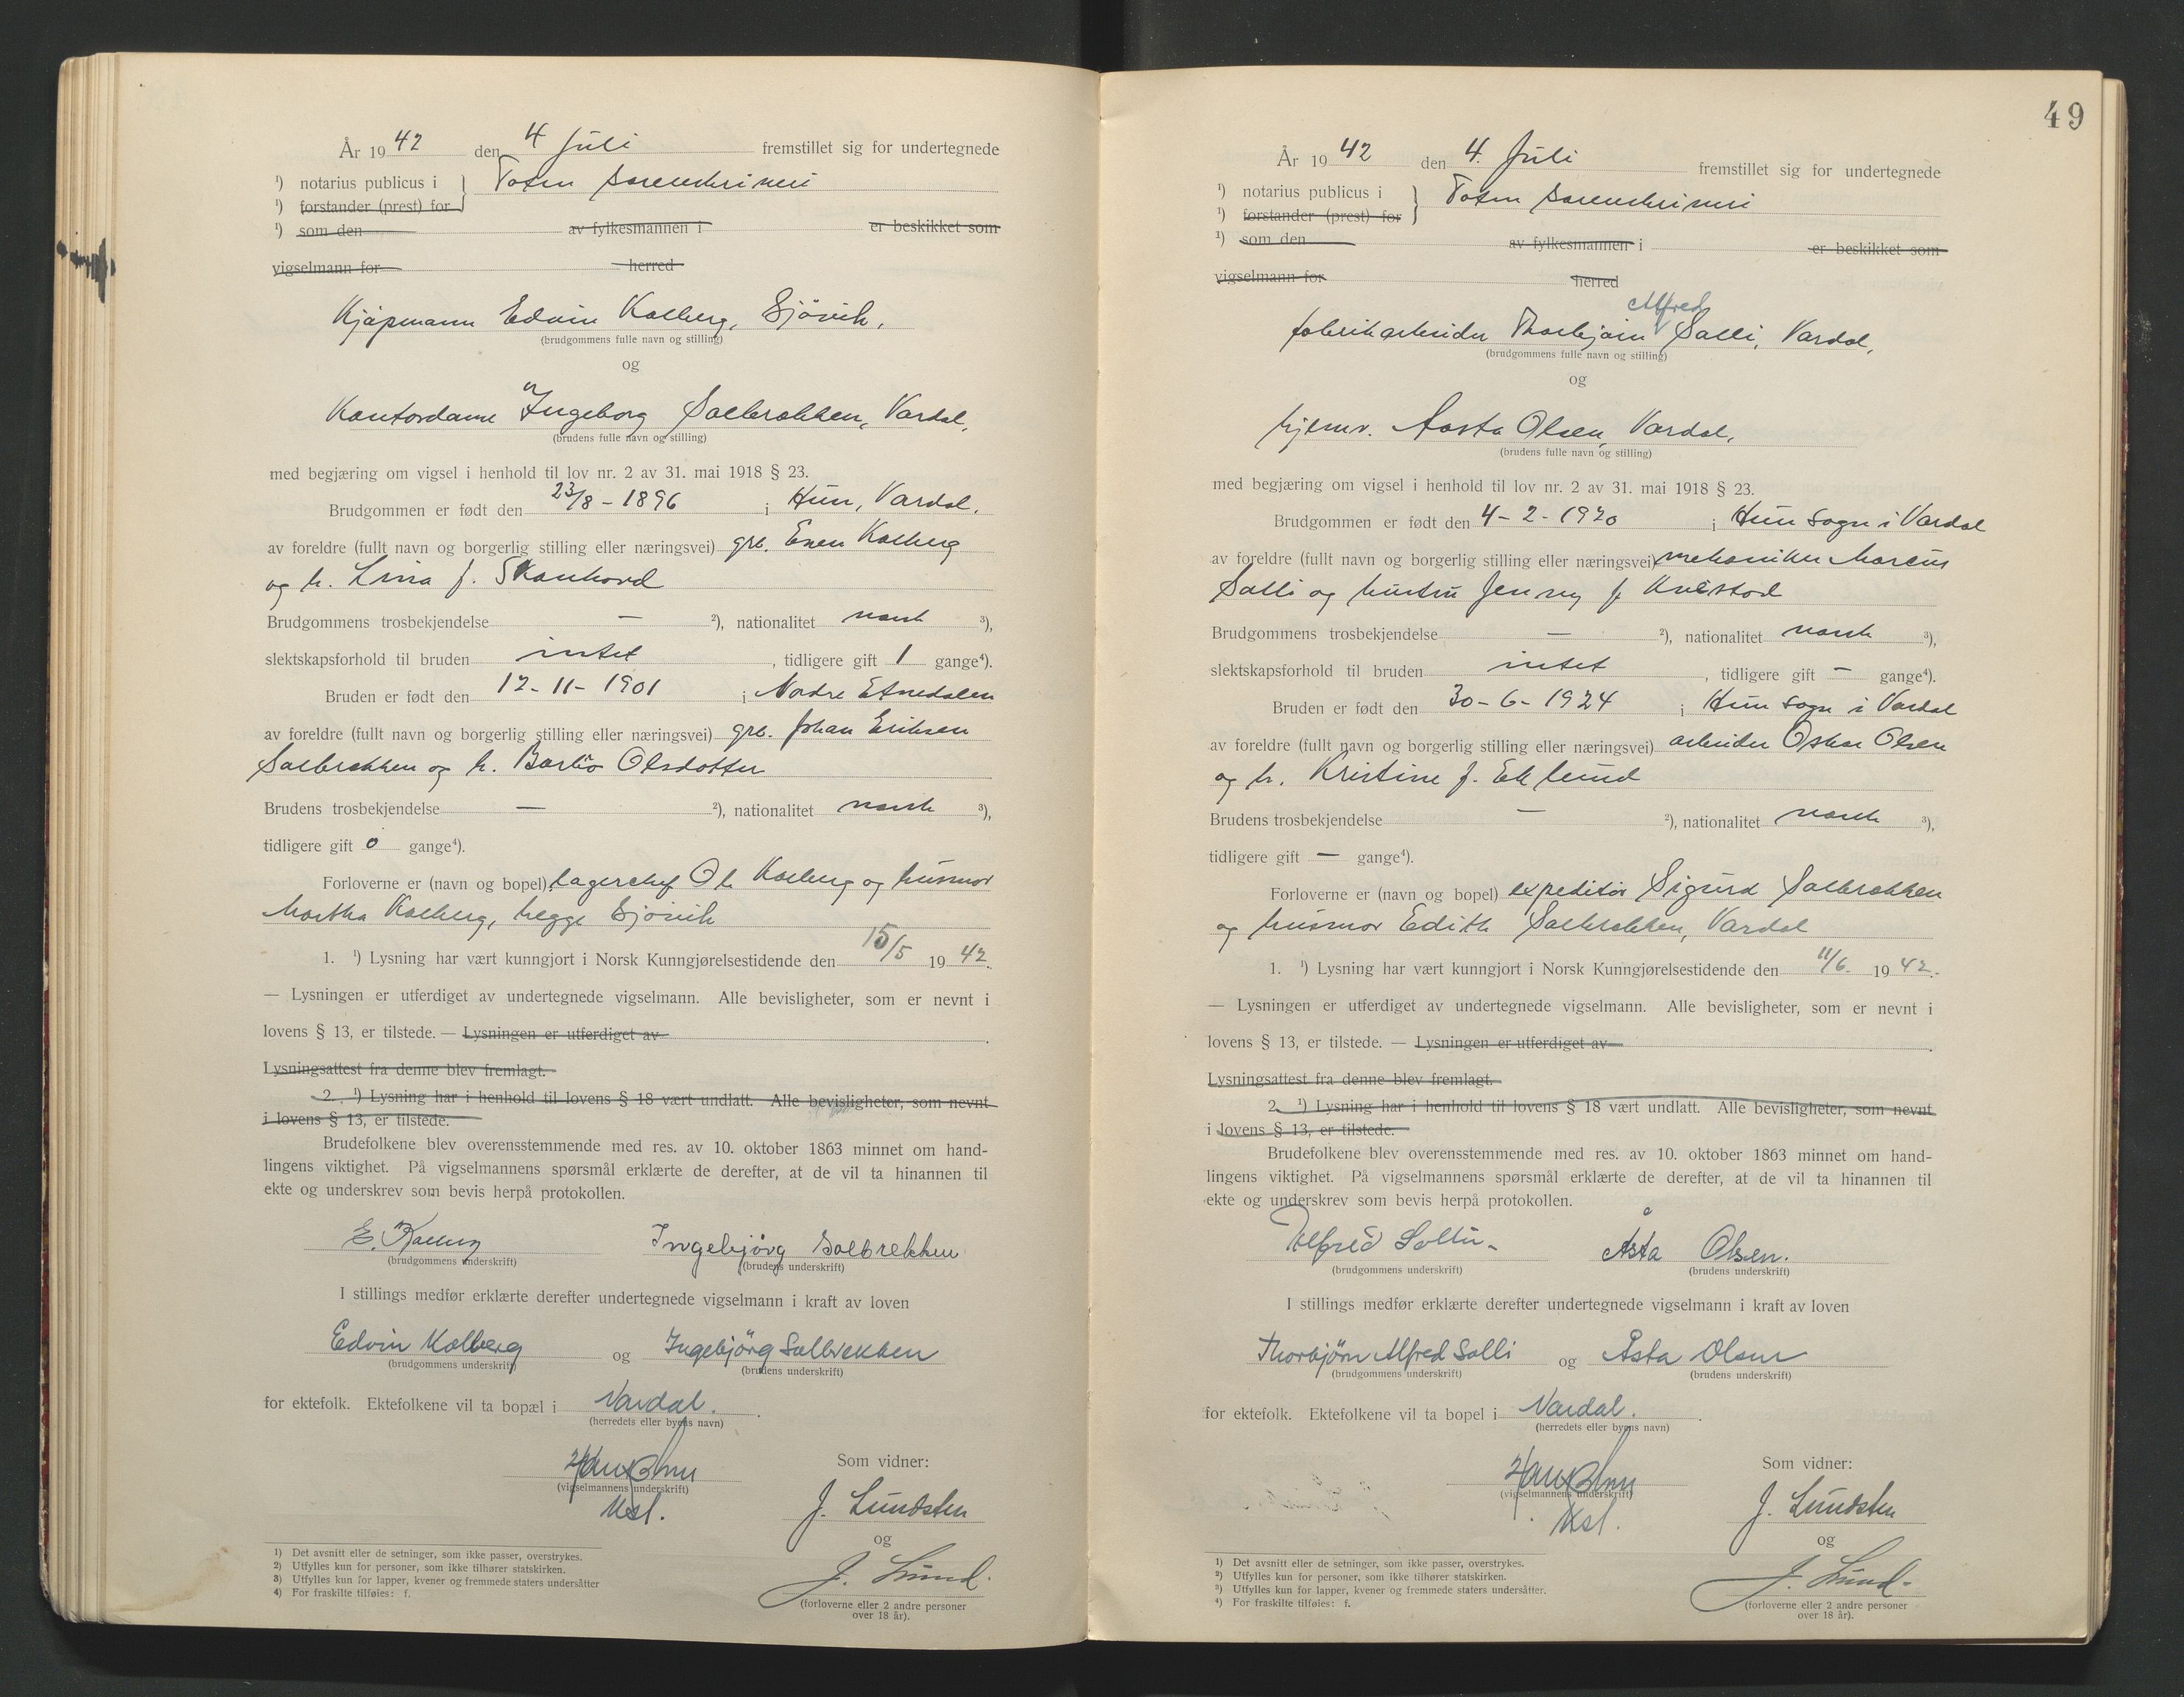 År 19 42 den 4 Juli fremstillet sig for undertegnede
¹) notarius publicus i } Toten sorenskriveri
¹) forstander (prest) for
¹) som den av fylkesmannen i er beskikket som
vigselmann for herred
Kjøpmann Edvin Kolberg, Gjövik,
(brudgommens fulle navn og stilling)
og
Kontordame Ingeborg Solbrekken, Vardal,
(brudens fulle navn og stilling)
med begjæring om vigsel i henhold til lov nr. 2 av 31. mai 1918 § 23.
Brudgommen er født den 23/8 - 1896 i Hun, Vardal.
av foreldre (fullt navn og borgerlig stilling eller næringsvei) grb. Even Kolberg
og h. Lina f. Skonhovd
Brudgommens trosbekjendelse — ²), nationalitet norsk ³),
slektskapsforhold til bruden intet, tidligere gift 1 gange⁴).
Bruden er født den 12-11-1901 i Nordre Etnedalen
av foreldre (fullt navn og borgerlig stilling eller næringsvei) grb. Johan Eriksen
Solbrekken og h. Barbro Olsdotter
Brudens trosbekjendelse — ²), nationalitet norsk ³),
tidligere gift 0 gange⁴).
Forloverne er (navn og bopel) lagerchef Ole Kolberg og husmor
Martha Kolberg, begge Gjövik
1. ¹) Lysning har vært kunngjort i Norsk Kunngjørelsestidende den 15/5 19 42.
— Lysningen er utferdiget av undertegnede vigselmann. Alle bevisligheter, som er nevnt i
lovens § 13, er tilstede. — Lysningen er utferdiget av
Lysningsattest fra denne blev fremlagt.
2. ¹) Lysning har i henhold til lovens § 18 vært undlatt. Alle bevisligheter, som nevnt
i lovens § 13, er tilstede.
Brudefolkene blev overensstemmende med res. av 10. oktober 1863 minnet om hand-
lingens viktighet. På vigselmannens spørsmål erklærte de derefter, at de vil ta hinannen til
ekte og underskrev som bevis herpå protokollen.
E. Kolberg Ingebjörg Solbrekken
(brudgommens underskrift) (brudens underskrift)
I stillings medfør erklærte derefter undertegnede vigselmann i kraft av loven
Edvin Kolberg og Ingebjörg Solbrekken
(brudgommens underskrift) (brudens underskrift)
for ektefolk. Ektefolkene vil ta bopæl i Vardal.
(herredets eller byens navn)
Som vidner:
(vigselmannens underskrift)
J. Lundsten
og
J. Lund.
(forloverne eller 2 andre personer
over 18 år).
1) Det avsnitt eller de setninger, som ikke passer, overstrykes.
2) Utfylles kun for personer, som ikke tilhører statskirken.
3) Utfylles kun for lapper, kvener og fremmede staters undersåtter
4) For fraskilte tilføies: f.
49
År 19 42 den 4. Juli fremstillet sig for undertegnede
¹) notarius publicus i } Toten sorenskriveri
¹) forstander (prest) for
¹) som den av fylkesmannen i er beskikket som
vigselmann for herred
Alfred
fabrikarbeider Thorbjörn Solli, Vardal,
(brudgommens fulle navn og stilling)
og
hjemv. Aasta Olsen, Vardal,
(brudens fulle navn og stilling)
med begjæring om vigsel i henhold til lov nr. 2 av 31. mai 1918 § 23.
Brudgommen er født den 4-2-1920 i Hun sogn i Vardal
av foreldre (fullt navn og borgerlig stilling eller næringsvei) mekaniker Marcus
Solli og hustru Jenny f. Kvilstad
Brudgommens trosbekjendelse — ²), nationalitet norsk ³),
slektskapsforhold til bruden intet, tidligere gift — gange⁴).
Bruden er født den 30-6-1924 i Hun sogn i Vardal
av foreldre (fullt navn og borgerlig stilling eller næringsvei) arbeider Oskar Olsen
og h. Kristine f. Eklund
Brudens trosbekjendelse — ²), nationalitet norsk ³),
tidligere gift — gange⁴).
Forloverne er (navn og bopel) expeditör Sigurd Solbrekken
og husmor Edith Solbrekken, Vardal
1. ¹) Lysning har vært kunngjort i Norsk Kunngjørelsestidende den 11/6. 19 42.
— Lysningen er utferdiget av undertegnede vigselmann. Alle bevisligheter, som er nevnt i
lovens § 13, er tilstede. — Lysningen er utferdiget av
Lysningsattest fra denne blev fremlagt.
2. ¹) Lysning har i henhold til lovens § 18 vært undlatt. Alle bevisligheter, som nevnt
i lovens § 13, er tilstede.
Brudefolkene blev overensstemmende med res. av 10. oktober 1863 minnet om hand-
lingens viktighet. På vigselmannens spørsmål erklærte de derefter, at de vil ta hinannen til
ekte og underskrev som bevis herpå protokollen.
Alfred Solli Åsta Olsen.
(brudgommens underskrift) (brudens underskrift)
I stillings medfør erklærte derefter undertegnede vigselmann i kraft av loven
Thorbjörn Alfred Solli og Åsta Olsen
(brudgommens underskrift) (brudens underskrift)
for ektefolk. Ektefolkene vil ta bopel i Vardal.
(herredets eller byens navn)
Som vidner:
(vigselmannens underskrift)
J. Lundsten
og
J. Lund.
(forloverne eller 2 andre personer
over 18 år).
¹) Det avsnitt eller de setninger, som ikke passer, overstrykes.
²) Utfylles kun for personer, som ikke tilhører statskirken.
³) Utfylles kun for lapper, kvener og fremmede staters undersåtter.
⁴) For fraskilte tilføies: f.